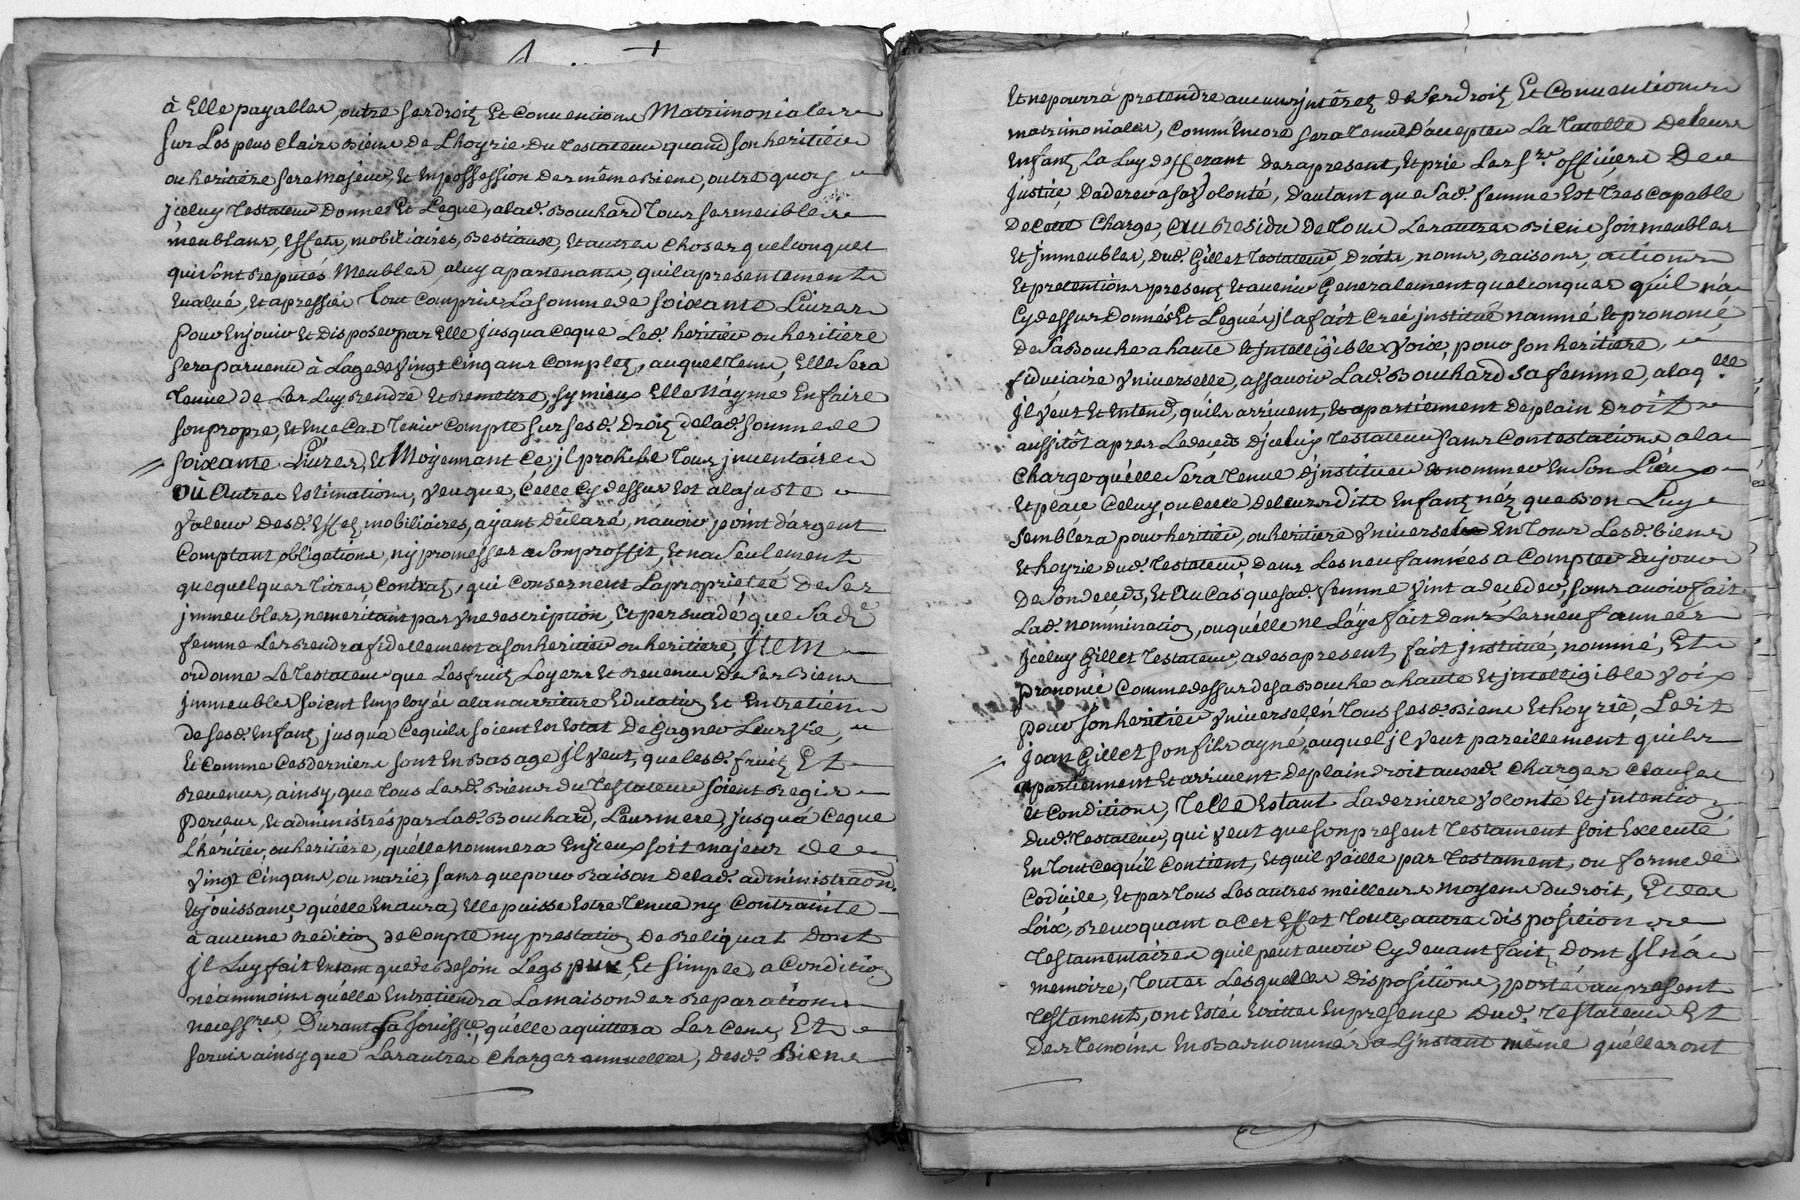 à Elle payables, outre ses droitz Et Conventions Matrimoniales
Sur Les plus Clairs Biens De L'hoyrie Du Testateur quand son heritier
ou heritiere sera Majeur, Et En possession des mêmes Biens, outre quoy
jceluy Testateur Donne Et Legue, a lad. Bouchard Tous ses meubles
meublans, Effets, mobiliaires, Bestiaux, Et autres choses quelconques
qui sont Reputés Meubles, a luy apartenants, qu'il a presentement
Evalué, Et apressié Tout Compris La somme de soixante Livres
Pour En jouir Et Disposer par Elle jusqua ce que Led. heritier ou heritiere
sera parvenu à Lage de vingt Cinq ans Complets, auquel Tems, Elle sera
Tenue de Les Luy Rendre Et Remettre, sy mieux Elle N'ayme En faire
son propre, Et En ce Cas Tenir Compte sur sesd. Droitz de lad. somme de
soixante Livres, Et Moyennant Ce, jl prohibe Tous jnventaires
où Autres Estimations, veu que, Celle Cy dessus Est a la juste
valeur desd. Effets mobiliaires, ayant Déclaré, n'avoir point d'argent
Comptant, obligations, ny promesses a son proffit, Et n'a seulement
que quelques Titres, Contratz, qui Consernent La proprieté De Ses
jmmeubles, ne meritant pas une description, Et persuadé que Sade
femme Les Rendra fidellement a son heritier ou heritiere, Jtem
ordonne Le Testateur que Les fruitz Loyers Et Revenus De Ses Biens
jmmeubles soient Employés a la nourriture Education Et Entretien
de sesd. Enfans, jusqua Ce qu'ils soient En Estat De Gagner Leur Vie,
Et Comme Ces derniers sont En Bas age Jl veut, que lesd. fruitz Et
Revenus, ainsy que Tous Lesd. Biens du Testateur soient Regis
perceus, Et administrés par Lad. Bouchard, Leur mere, jusqu'à Ce que
L'héritier, ou heritiere, qu'elle Nommera En jceux soit majeur de
vingt Cinq ans, ou marié, sans que pour Raison de lad. administraon.
Et jouissance qu'elle En aura, Elle puisse Estre Tenue ny Contrainte
à aucune Redition de Compte ny prestation De Reliquat Dont
jl Luy fait En tant que de Besoin Legs pur, Et simple, a Condition
néammoins qu'elle Entretiendra La maison des Reparations
necessres. Durant sa jouissce. qu'elle aquittera Les Cens, Et
servis ainsy que Les autres Charges annuelles, desd. Biens
Et ne pourra pretendre aucuns jntérets de Ses droitz Et Conventions
matrimoniales, Comm'Encore sera Tenue D'accepter La Tutelle de leurs
Enfans, La Luy defferant des apresent, Et prie Les Srs. officiers De
justice, D'adherer a sa volonté, d'autant que Sad. femme Est Tres Capable
De Cette Charge, Au Residu De Tous Les autres Biens soit meubles
Et jmmeubles, Dud. Gillet Testateur, Droits, noms, Raisons, actions
Et pretentions presens Et avenir Generalement quelconques qu'il n'a
Cy dessus Donnés Et Legués, jl a fait Creé jnstitué nommé Et prononcé
de Sa Bouche a haute Et jntelligible voix, pour son heritiere,
fiduciaire vniverselle, assavoir Lad. Bouchard sa femme, a laqelle
Jl veut Et Entend, qu'ils arrivent, Et apartiennent de plain Droit
aussitôt apres Le deceds d'jceluy Testateur sans Contestations a la
Charge qu'elle Sera Tenue d'jnstituer Et nommer En Son Lieu
Et place Celuy, ou Celle De leurs dits Enfans néz que Bon Luy
semblera pour heritier, ou heritiere vniversel En Tous Lesd. biens
Et hoyrie Dud. Testateur, Dans Les neuf années a Compter Du jour
De Son deceds, Et Au Cas que Sad. femme vint a deceder, Sans avoir fait
Lad. nommination, ou qu'elle ne L'aye fait Dans Les neuf années
Jceluy Gillet Testateur a des apresent, fait jnstitué, nommé, Et
prononcé Comme dessus de sa Bouche a haute Et jntelligible voix
pour son heritier vniversel En Tous sesd. Biens Et hoyrie, Ledit
Jean Gillet son fils ayné, auquel jl veut pareillement qu'ils
apartiennent Et arrivent De plain droit auxd. Charges Clauses
Et Conditions, Telle Estant La derniere volonté Et jntention
Dud. Testateur, qui veut que son present Testament soit Executé
En Tout Ce qu'il Contient, Et qu'il vaille par Testament, ou forme de
Codicile, Et par Tous Les autres meilleurs moyens Du droit, Et des
Loix, Revoquant a Cet Effet Toutes autres dispositions
Testamentaires qu'il peut avoir Cy devant fait, Dont Jl n'a
memoire, Toutes Lesquelles Dispositions, portés au present
Testament, ont Estés Ecrittes En presence Dud. Testateur Et
Des Temoins En Bas nommés a L'jnstant même qu'elles ont